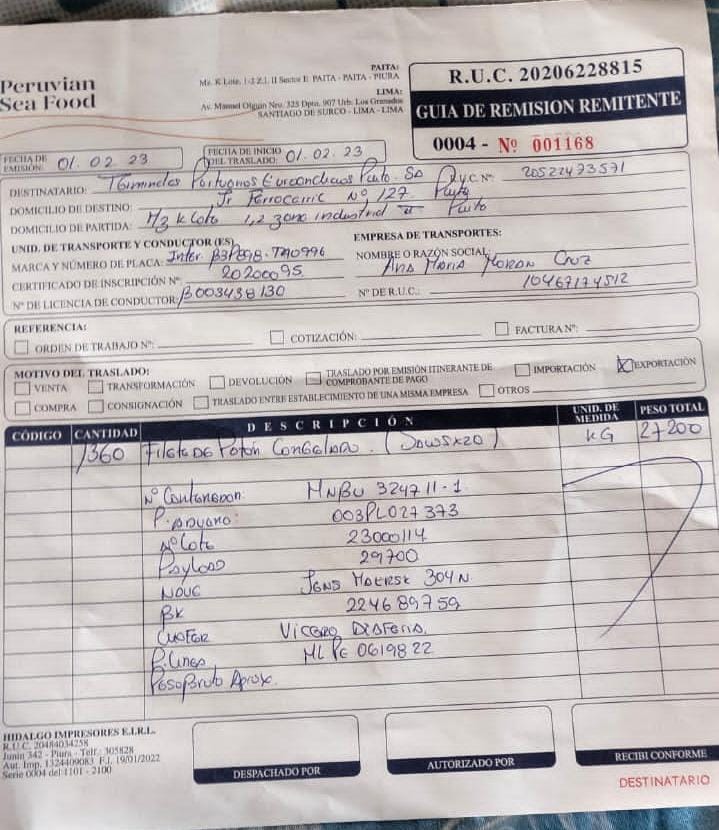 Peruvian
Sea Food
PAITA:
Mz. K Lote. 1-2 Z.I. II Sector E PAITA - PAITA - PIURA
LIMA:
Av. Manuel Olguin Nro. 325 Dpto. 907 Urb. Los Granados
SANTIAGO DE SURCO - LIMA - LIMA
R.U.C. 20206228815
GUIA DE REMISION REMITENTE
0004 - Nº 001168
FECHA DE EMISIÓN: 01.02.23 FECHA DE INICIO DEL TRASLADO: 01.02.23
DESTINATARIO: Terminales Portuarios Euroandinos Paita. SA R.U.C. Nº: 20522473571
DOMICILIO DE DESTINO: Jr Ferrocarril Nº 127 Paita
DOMICILIO DE PARTIDA: Mz K Lote 1,2 zona industrial II Paita
UNID. DE TRANSPORTE Y CONDUCTOR (ES) EMPRESA DE TRANSPORTES:
MARCA Y NÚMERO DE PLACA: Inter. B3P898. TAO996 NOMBRE O RAZÓN SOCIAL: Ana Maria Moran Cruz
CERTIFICADO DE INSCRIPCIÓN Nº 20200095
Nº DE LICENCIA DE CONDUCTOR: B003438130 Nº DE R.U.C.: 10467174512
REFERENCIA:
ORDEN DE TRABAJO Nº: COTIZACIÓN: FACTURA Nº:
MOTIVO DEL TRASLADO:
VENTA TRANSFORMACIÓN DEVOLUCIÓN TRASLADO POR EMISIÓN ITINERANTE DE COMPROBANTE DE PAGO IMPORTACIÓN X EXPORTACIÓN
COMPRA CONSIGNACIÓN TRASLADO ENTRE ESTABLECIMIENTO DE UNA MISMA EMPRESA OTROS
CÓDIGO CANTIDAD DESCRIPCIÓN UNID. DE MEDIDA PESO TOTAL
1360 Filete de Potón Congelado. KG 27200
Nº Contenedor: MNBU 324711-1
P. Aduana: 003PL027373
Nº Lote 23000114
Payload 29700
Nave Jens Maersk 304N
BK 224689759
P. Linea ML PE 0619822
Peso Bruto Aprox.
HIDALGO IMPRESORES E.I.R.L.
R.U.C. 20484034258
Junin 342 - Piura - Telf.: 305828
Aut. Imp. 1324409083 F.I. 19/01/2022
Serie 0004 del 1101 - 2100
DESPACHADO POR
AUTORIZADO POR
RECIBI CONFORME
DESTINATARIO